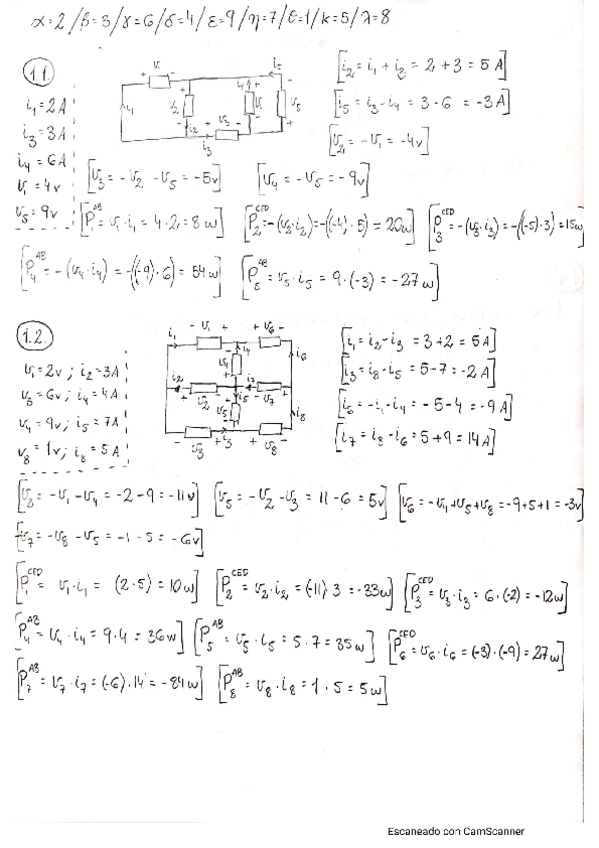 α=2 / β=3 / γ=6 / δ=4 / ε=9 / η=7 / θ=1 / k=5 / λ=8
1.1.
i₁=2A
i₃=3A
i₄=6A
v₁=4v
v₅=9v
[i₂ = i₁ + i₃ = 2 + 3 = 5 A]
[i₅ = i₃ - i₄ = 3 - 6 = -3A]
[v₂ = -v₁ = -4v]
[v₃ = -v₂ - v₅ = -5v] [v₄ = -v₅ = -9v]
[P₁ᴬᴮ = v₁·i₁ = 4·2 = 8w] [P₂ᶜᴱᴰ = -(v₂·i₂) = -((-4)·5) = 20w] [P₃ᶜᴱᴰ = -(v₃·i₃) = -((-5)·3) = 15w]
[P₄ᴬᴮ = -(v₄·i₄) = -((-9)·6) = 54w] [P₅ᴬᴮ = v₅·i₅ = 9·(-3) = -27w]
1.2.
v₁=2v ; i₂=3A
v₃=6v ; i₄=4A
v₄=9v ; i₅=7A
v₈=1v ; i₈=5A
[i₁ = i₂ - i₃ = 3+2 = 5A]
[i₃ = i₈ - i₅ = 5-7 = -2A]
[i₆ = -i₁ - i₄ = -5-4 = -9A]
[i₇ = i₈ - i₆ = 5+9 = 14A]
[v₂ = -v₁ - v₄ = -2-9 = -11v] [v₅ = -v₂ - v₃ = 11-6 = 5v] [v₆ = -v₄+v₅+v₈ = -9+5+1 = -3v]
[v₇ = -v₈ - v₅ = -1-5 = -6v]
[P₁ᶜᴱᴰ = v₁·i₁ = (2·5) = 10w] [P₂ᶜᴱᴰ = v₂·i₂ = (-11)·3 = -33w] [P₃ᶜᴱᴰ = v₃·i₃ = 6·(-2) = -12w]
[P₄ᴬᴮ = v₄·i₄ = 9·4 = 36w] [P₅ᴬᴮ = v₅·i₅ = 5·7 = 35w] [P₆ᶜᴱᴰ = v₆·i₆ = (-3)·(-9) = 27w]
[P₇ᴬᴮ = v₇·i₇ = (-6)·14 = -84w] [P₈ᴬᴮ = v₈·i₈ = 1·5 = 5w]
Escaneado con CamScanner